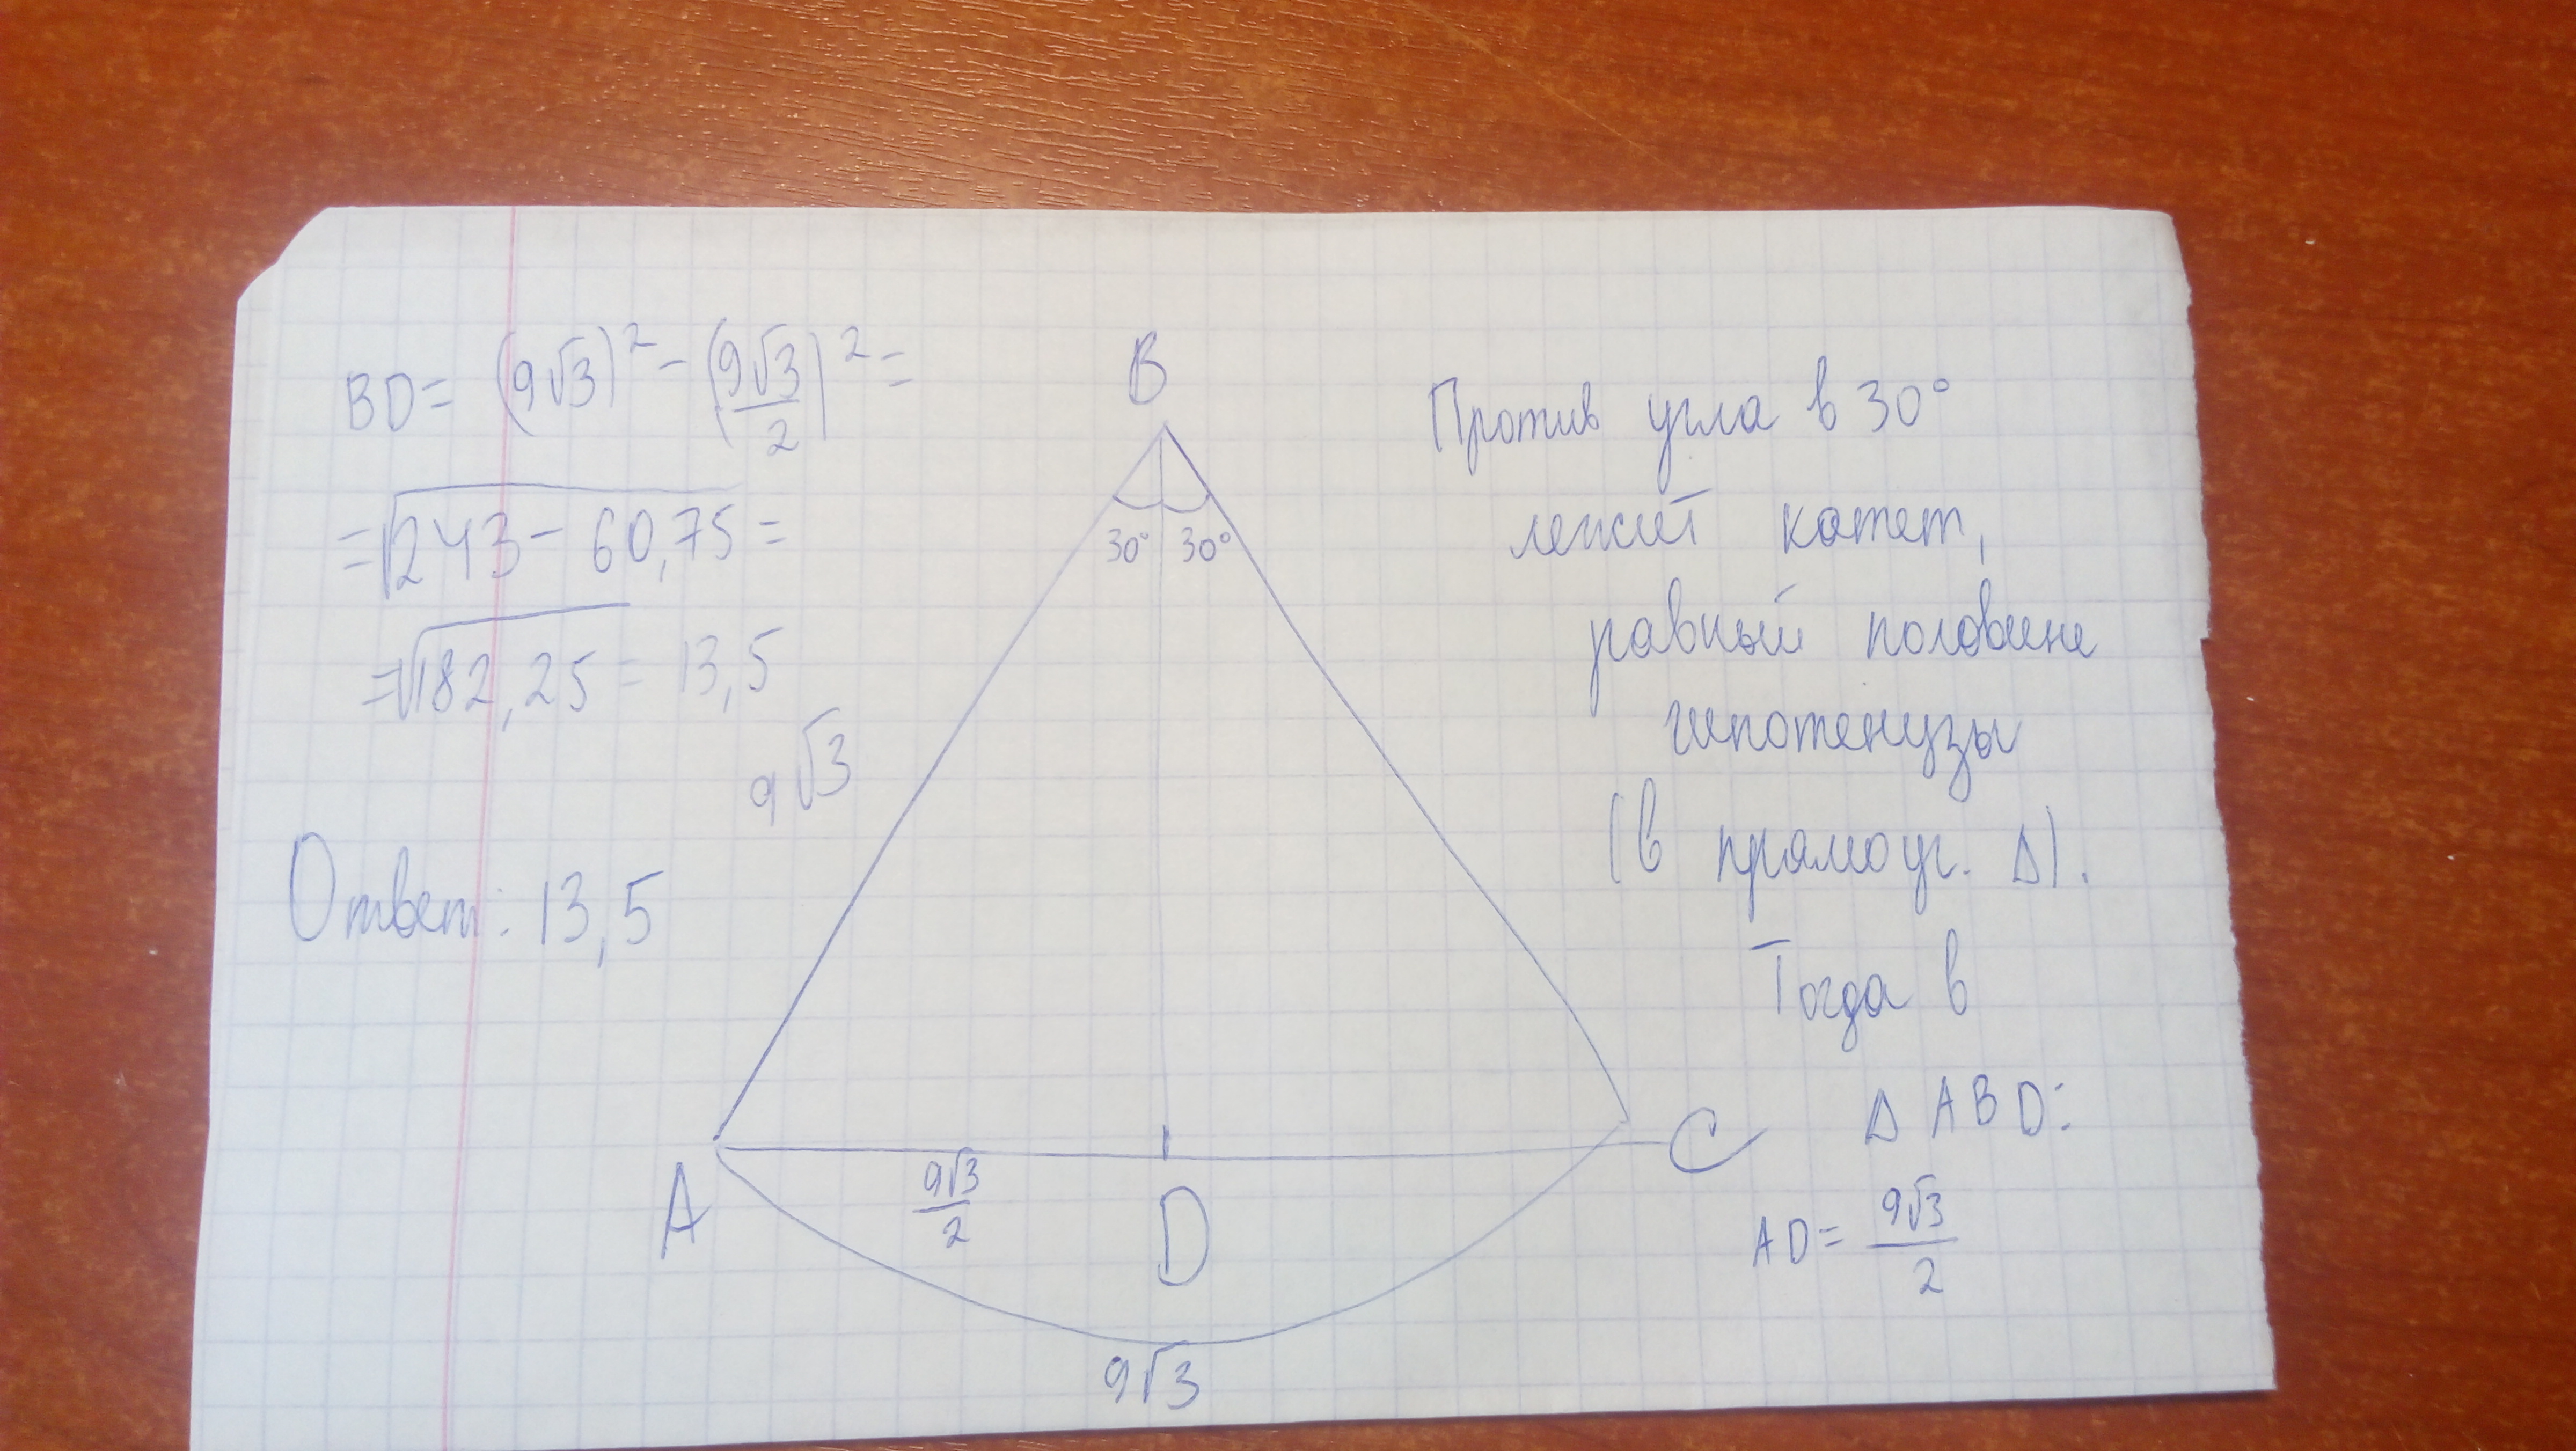 BD= (9√3)² - (9√3/2)² =
= √243 - 60,75 =
= √182,25 = 13,5
Ответ: 13,5
B
30° 30°
9√3
A
9√3/2
D
C
9√3
Против угла в 30°
лежит катет,
равный половине
гипотенузы
(в прямоуг. Δ).
Тогда в
Δ ABD:
AD= 9√3/2